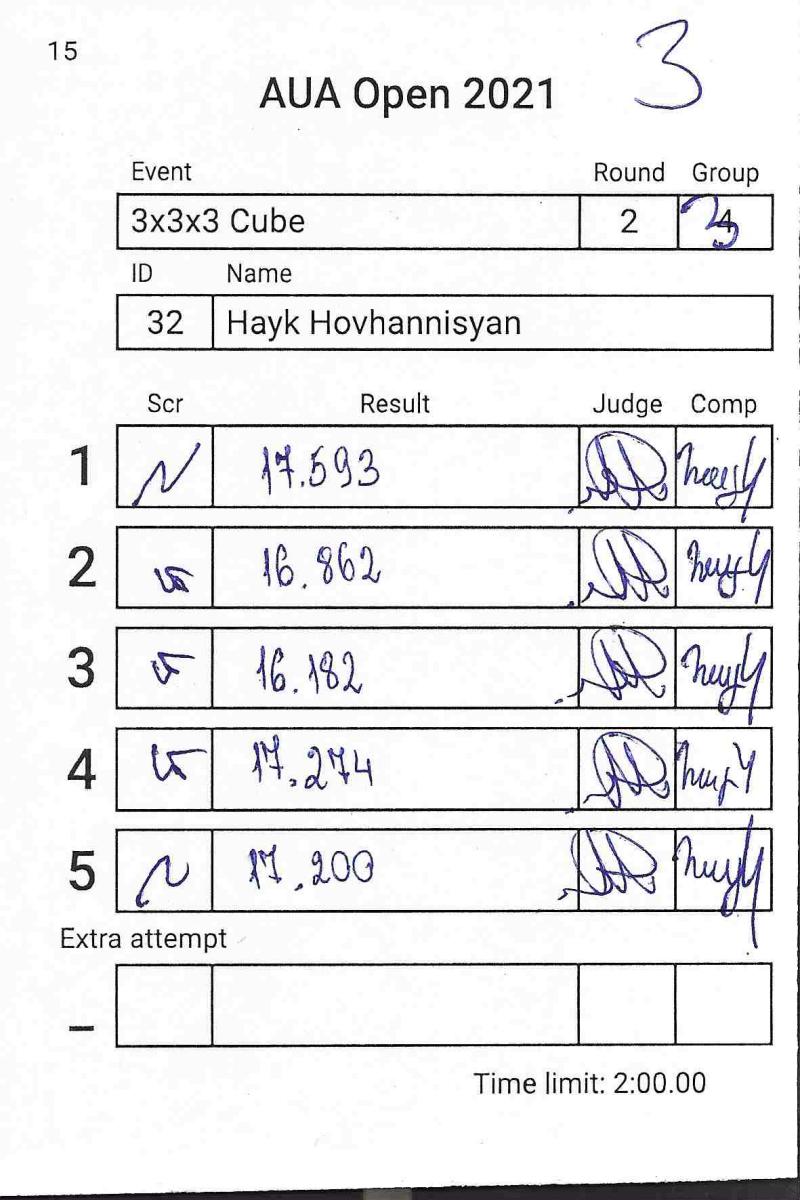 15
3
AUA Open 2021
Event Round Group
3x3x3 Cube 2 4 3
ID Name
32 Hayk Hovhannisyan
Scr Result Judge Comp
1 17.593
2 16.862
3 16.182
4 17.274
5 17.200
Extra attempt
_
Time limit: 2:00.00